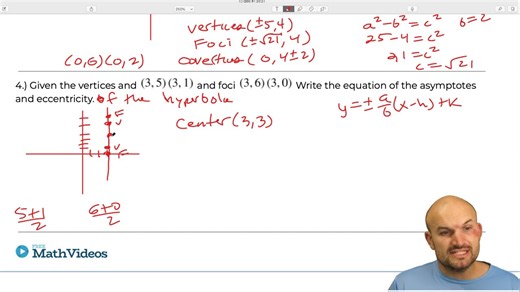 vertices (±5,4)
Foci (±√21, 4)
covertices (0, 4±2)
(0,6)(0,2)
a²-b²=c²
b=2
25-4=c²
21=c²
c=√21
4.) Given the vertices and (3,5)(3,1) and foci (3,6)(3,0) Write the equation of the asymptotes
and eccentricity. of the hyperbola
y=± a/b (x-h)+k
center (3,3)
F
V
V
F
5+1/2
6+0/2
FREE
MathVideos